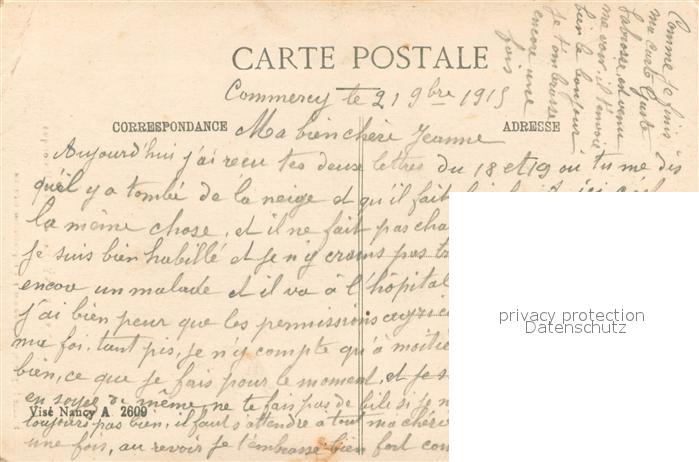 CARTE POSTALE
Commercy le 21 9bre 1915
CORRESPONDANCE
ADRESSE
Ma bien chère Jeanne
Aujourd'hui j'ai recu tes deux lettres du 18 et 19 ou tu me dis
qu'il y a tombé de la neige et qu'il fait
la même chose, et il ne fait pas
je suis bien habillé et je n'y crains pas
encore un malade et il va à l'hôpital
j'ai bien peur que les permissions
ma foi, tant pis, je n'y compte qu'à moitié
bien, ce que je fais pour le moment, et je s
en soyez de même ne te fais pas de bile si je n
Visé Nancy A 2609
toujours pas bien, il faut s'attendre à tout ma chérie
une fois, au revoir je t'embrasse bien fort com
Comme je finis
ma carte
Labrosse, est venu
me voir il t'envoie
bien le bonjour
je t'embrasse
encore une
fois
privacy protection
Datenschutz